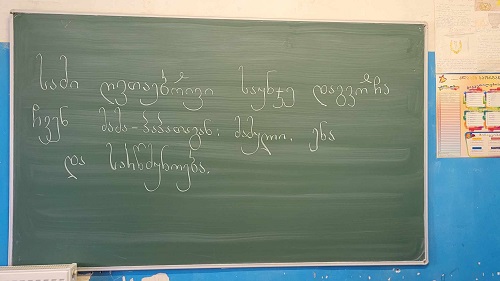 სამი ღვთაებრივი საუნჯე დაგვრჩა
ჩვენ მამა-პაპათაგან: მამული, ენა
და სარწმუნოება.